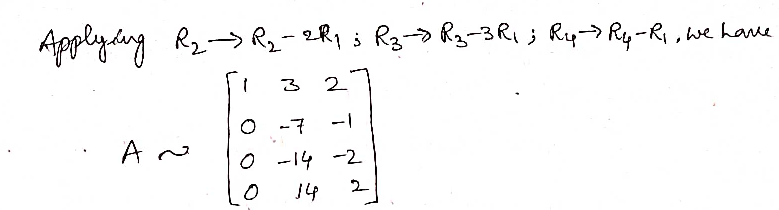 Applying R₂→R₂-2R₁ ; R₃→R₃-3R₁ ; R₄→R₄-R₁, we have
A ~ [1 3 2
0 -7 -1
0 -14 -2
0 14 2]